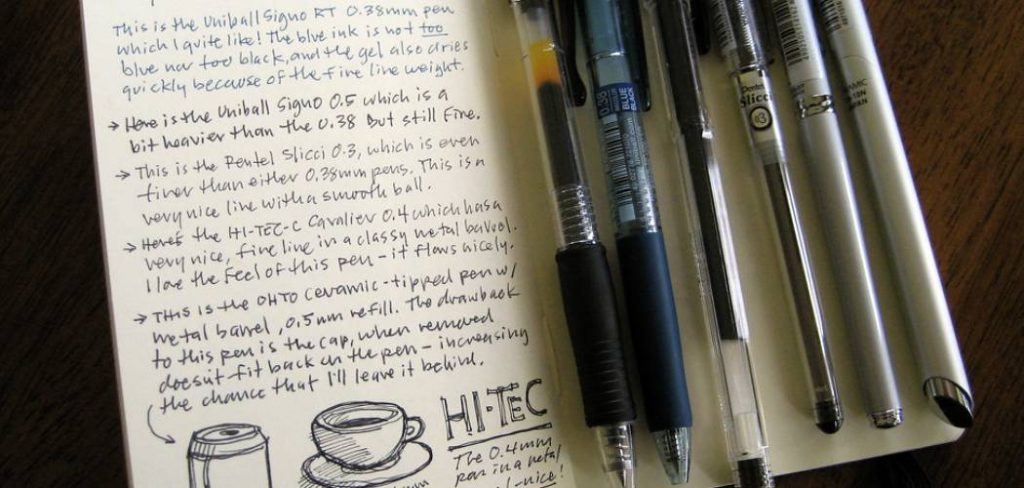 This is the Uniball Signo RT 0.38mm pen
which I quite like! The blue ink is not too
blue nor too black, and the gel also dries
quickly because of the fine line weight.
→ Here is the Uniball Signo 0.5 which is a
bit heavier than the 0.38 But still Fine.
→ This is the Pentel Slicci 0.3, which is even
finer than either 0.38mm pens. This is a
very nice line with a smooth ball.
→ Here's the HI-TEC-C Cavalier 0.4 which has a
very nice, fine line in a classy metal barrel.
I love the feel of this pen - it flows nicely.
→ THis is the OHTO ceramic-tipped pen w/
metal barrel, 0.5mm refill. The drawback
to this pen is the cap, when removed
doesn't fit back on the pen - increasing
the chance that I'll leave it behind.
HI-TEC
The 0.4mm
pen in a metal
nice!
mm
0.38
BLUE
BLACK
Pentel
Slicci